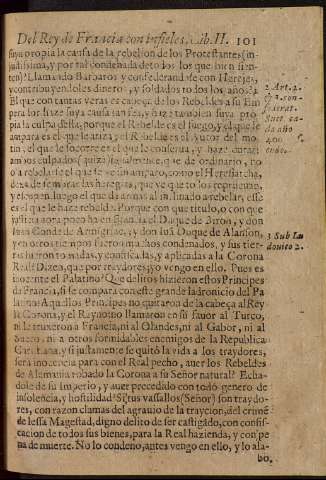 Del Rey de Francia con infieles, Lib. II. 101
suya propia la causa de la rebelion de los Protestantes (in-
justissima, y por tal condenada de todos los que bien sien-
ten) ? Llamando Barbaros y confederandose con Herejes,
y contribuyendoles dinero, y soldados todos los años?
El que con tantas veras es cabeça de los Rebeldes a su Em
perador haze suya causa y haze tambien suya pro
pia la culpa porque el Rebelde es el que le
ampara es el que leuanta el Rebelde es el Autor del mo
tin, el que le socorre es el que le conserua, y haze
ambos culpados (quiza igualmente, que de ordinario, no
se rebelaria el que se ve sin amparo, como el Heresiarcha,
dexa de sembrar las heregias, que ve que to los reprueuan,
y el con en luego el que da armas al inclinado a rebelar, esse
es el que le haze rebelde. Porque con que titulo, o con que
justicia aora poco ha en Francia el Duque de Biron, y don
Iuan Conde de Armignac, y don Iuã Duque de Alanson,
y en otros tiempos fueron muchos condenados, y sus tier-
ras fueron tomadas, y confiscadas, y aplicadas a la Corona
Real? Dizen, que por traydores; yo vengo en ello. Pues es
inocente el Palatino? Que delitos hizieron estos Principes
de Francia, si se compara con este grande ladronicio del Pa
latino? Aquellos Principes no quitaron de la cabeça al Rey
la Corona, y el Reyno, no llamaron en su fauor al Turco,
ni le truxeron a Francia, ni al Olandes, ni al Gabor, ni al
Sueco, ni a otros formidables enemigos de la Republica
Christiana, y si justamente se quitò la vida a los traydores,
serà inocencia para con el Real pecho, auer los Rebeldes
de Alemania robado la Corona a su Señor natural? Echa-
dole de su Imperio, y auer precedido con todo genero de
insolencia, y hostilidad? Si tus vassallos (Señor) son traydo-
res, con razon clamas del agrauio de la traycion, del crimẽ
de lessa Magestad, digno delito de ser castigado, con confis-
cacion de todos sus bienes, para la Real hazienda, y con pe
na de muerte. No lo condeno, antes vengo en ello, y lo ala-
bo,
2 Art. 2.
Suet. ca-
da año
400.
cubo.
3 Sub Lu
douico 2.